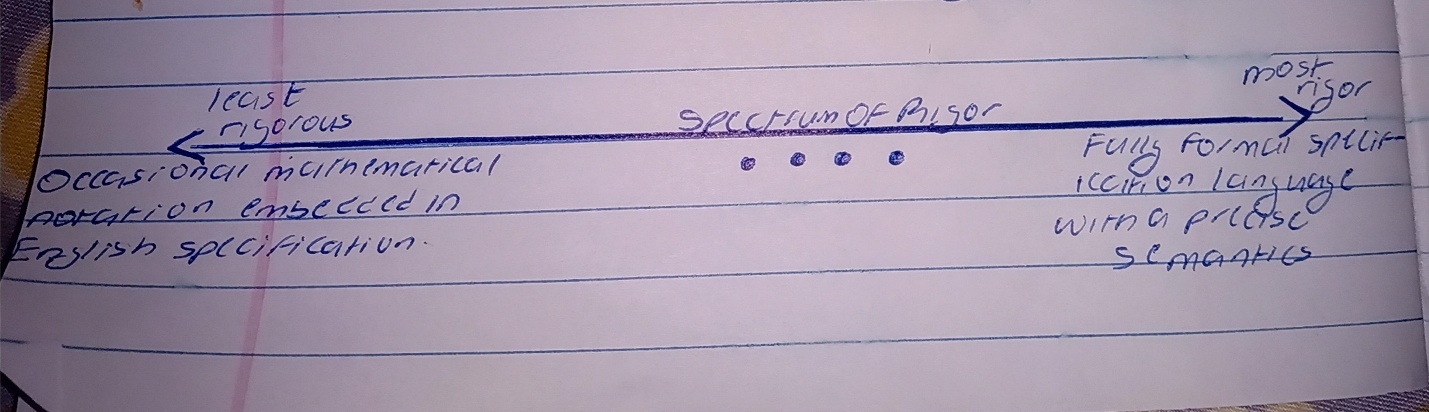 least
rigorous
Spectrum Of Rigor
most
rigor
Occasional mathematical
notation embedded in
English specification.
Fully formal specif-
ication language
with a precise
semantics